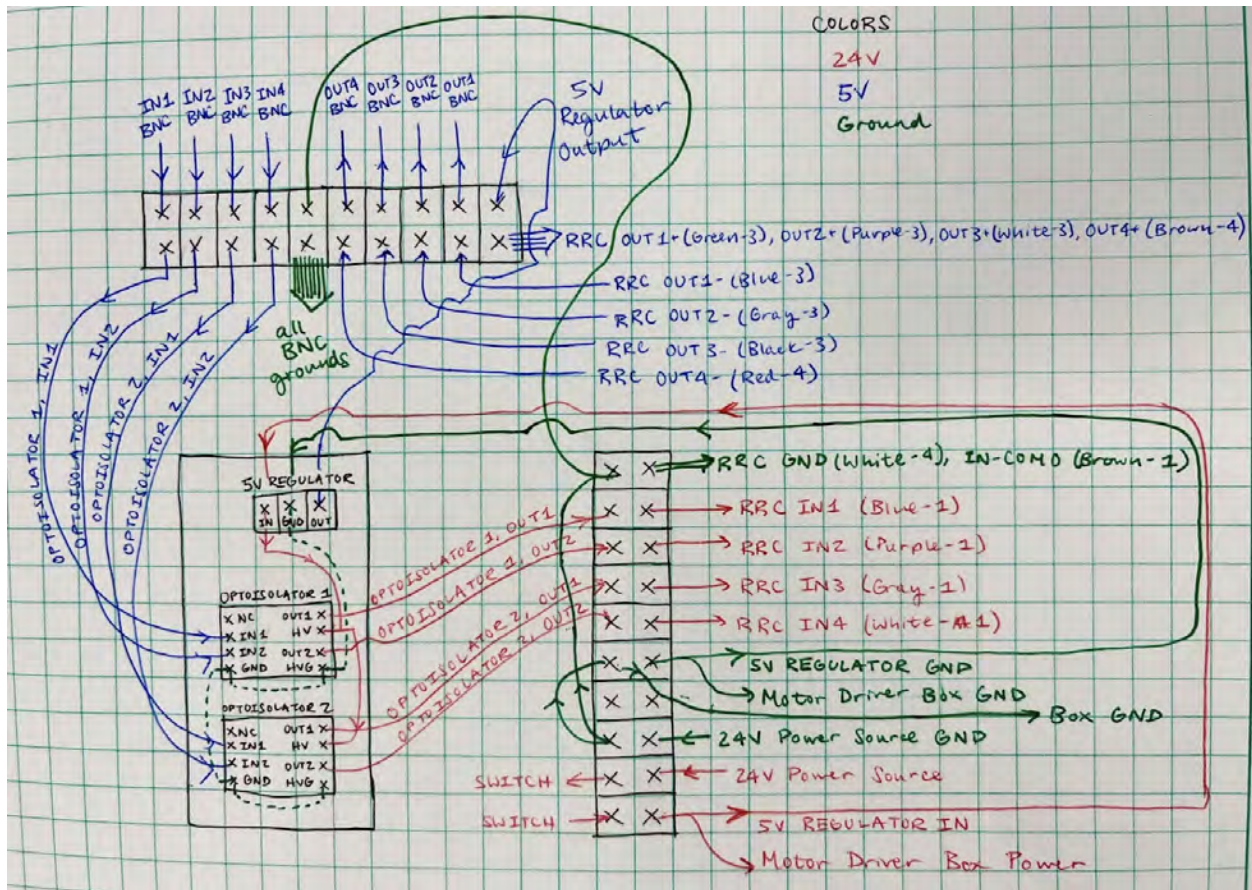 COLORS
24V
5V
Ground
IN1 BNC
IN2 BNC
IN3 BNC
IN4 BNC
OUT4 BNC
OUT3 BNC
OUT2 BNC
OUT1 BNC
5V
Regulator
Output
RRC OUT1+(Green-3), OUT2+(Purple-3), OUT3+(White-3), OUT4+(Brown-4)
RRC OUT1-(Blue-3)
RRC OUT2-(Gray-3)
RRC OUT3-(Black-3)
RRC OUT4-(Red-4)
all
BNC
grounds
OPTOISOLATOR 1, IN1
OPTOISOLATOR 1, IN2
OPTOISOLATOR 2, IN1
OPTOISOLATOR 2, IN2
5V REGULATOR
IN GND OUT
OPTOISOLATOR 1
NC OUT1
IN1 HV
IN2 OUT2
GND HVG
OPTOISOLATOR 2
NC OUT1
IN1 HV
IN2 OUT2
GND HVG
OPTOISOLATOR 1, OUT1
OPTOISOLATOR 1, OUT2
OPTOISOLATOR 2, OUT1
OPTOISOLATOR 2, OUT2
RRC GND (White-4), IN-COM0 (Brown-1)
RRC IN1 (Blue-1)
RRC IN2 (Purple-1)
RRC IN3 (Gray-1)
RRC IN4 (White-1)
5V REGULATOR GND
Motor Driver Box GND
Box GND
24V Power Source GND
SWITCH
24V Power Source
SWITCH
5V REGULATOR IN
Motor Driver Box Power